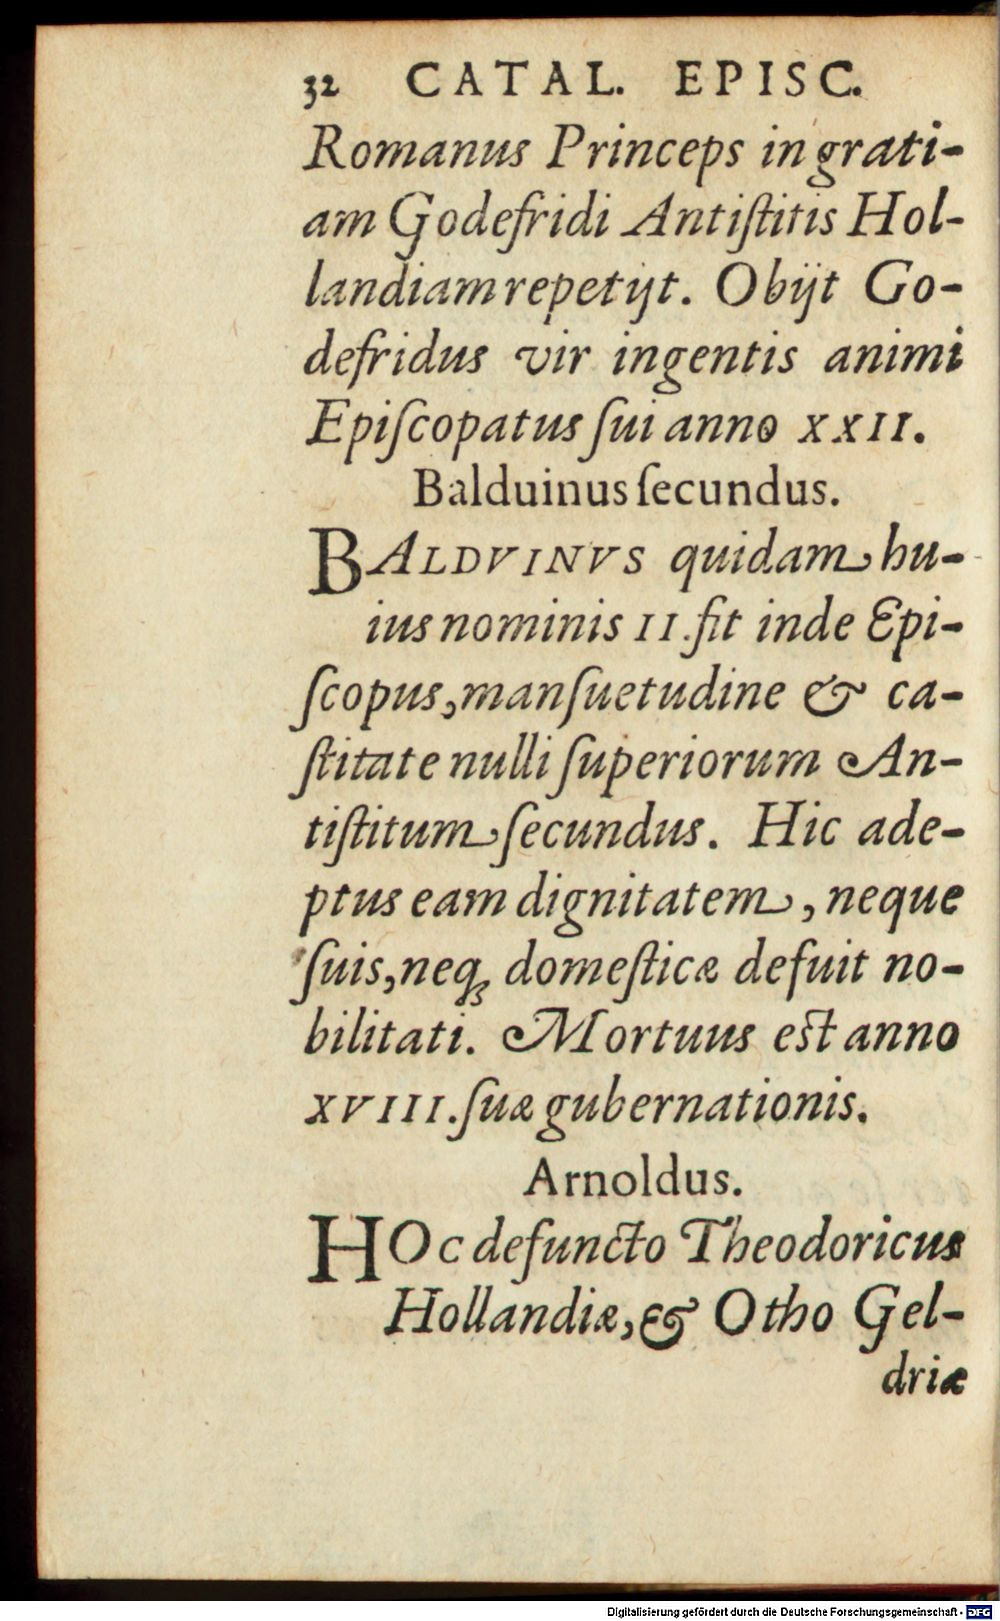 32 CATAL. EPISC.
Romanus Princeps in grati-
am Godefridi Antiſtitis Hol-
landiam repetijt. Obijt Go-
defridus vir ingentis animi
Epiſcopatus ſui anno XXII.
Balduinus ſecundus.
BALDVINVS quidam hu-
ius nominis II. fit inde Epi-
ſcopus, manſuetudine & ca-
ſtitate nulli ſuperiorum An-
tiſtitum ſecundus. Hic ade-
ptus eam dignitatem, neque
ſuis, neq; domeſticæ defuit no-
bilitati. Mortuus est anno
XVIII. ſuæ gubernationis.
Arnoldus.
HOc defuncto Theodoricus
Hollandiæ, & Otho Gel-
driæ
Digitalisierung gefördert durch die Deutsche Forschungsgemeinschaft - DFG